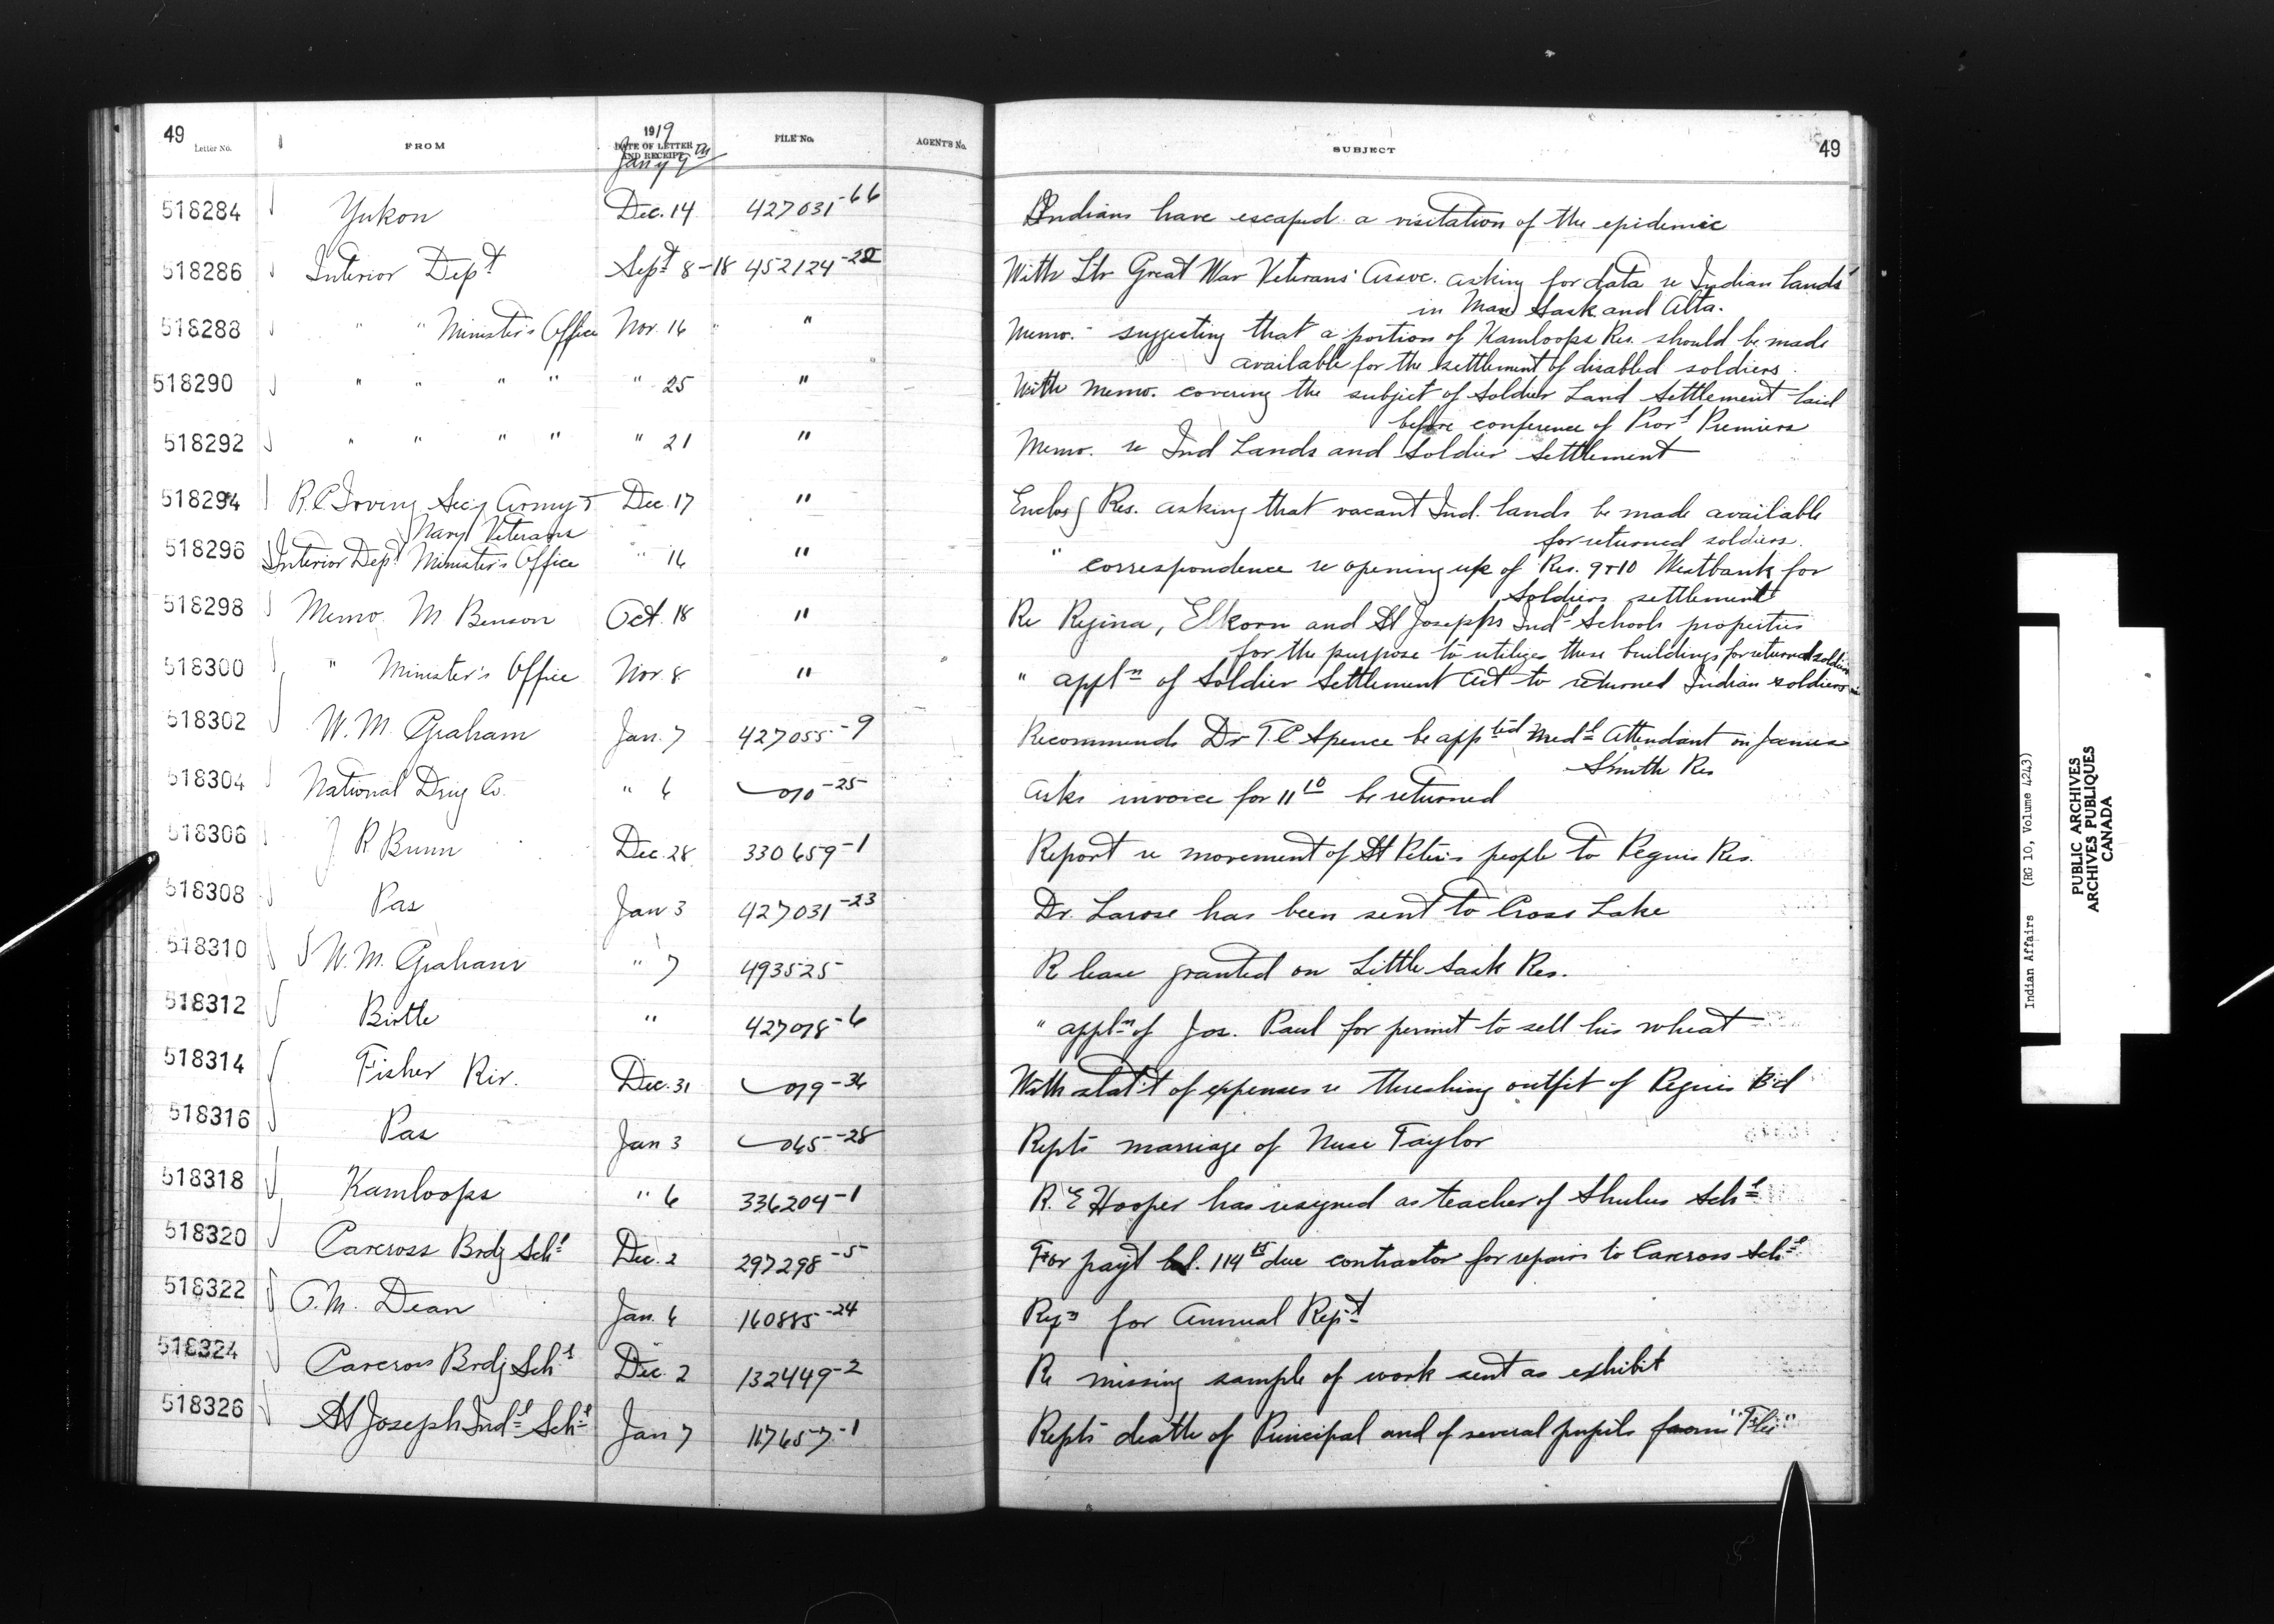 49 Letter No. FROM 1919 DATE OF LETTER AND RECEIPT Jany 9th FILE No. AGENT'S No. SUBJECT 49
518284 Yukon Dec. 14 427031-66 Indians have escaped a visitation of the epidemic
518286 Interior Dept Sept 8-18 452124-22 With Ltr Great War Veterans' Assoc. asking for data re Indian lands
in Man Sask and Alta.
518288 " " Minister's Office Nov. 16 " Memo. - suggesting that a portion of Kamloops Res. should be made
available for the settlement of disabled soldiers.
518290 " " " " " 25 " With memo. covering the subject of Soldier Land Settlement laid
before conference of Provl Premiers
518292 " " " " " 21 " Memo. re Ind Lands and Soldier Settlement
518294 R.C. Irving Secy Army & Dec. 17 " Enclosg Res. asking that vacant Ind. lands be made available
Navy Veterans for returned soldiers.
518296 Interior Dept Minister's Office " 16 " " correspondence re opening up of Res. 9 & 10 Westbank for
Soldiers settlement
518298 Memo. M Benson Oct. 18 " Re Regina, Elkorn and St Josephs Indl Schools properties
for the purpose to utilize these buildings for returned soldiers
518300 " Minister's Office Nov. 8 " " appln of Soldier Settlement Act to returned Indian soldiers
518302 W. M. Graham Jan. 7 427055-9 Recommends Dr T.C. Spence be appted Medl Attendant on James
Smith Res
518304 National Drug Co. " 6 010-25 Asks invoice for 11 10 be returned
518306 J R Bunn Dec. 28 330659-1 Report re movement of St Peter's people to Peguis Res.
518308 Pas Jan 3 427031-23 Dr. Larose has been sent to Cross Lake
518310 W. M. Graham " 7 493525 Re lease granted on Little Sask Res.
518312 Birtle " 427078-6 " appln of Jos. Paul for permit to sell his wheat
518314 Fisher Riv. Dec. 31 019-36 With stat't of expenses re threshing outfit of Peguis Bd
518316 Pas Jan 3 065-28 Repts marriage of Nurse Taylor
518318 Kamloops " 6 336204-1 R. E Hooper has resigned as teacher of Shulus Schl
518320 Carcross Brdg Schl Dec. 2 297298-5 For payt bal. 114 due contractor for repairs to Carcross Schl
518322 Dean Jan. 6 160885-24 for Annual Rept
518324 Carcross Brdg Schl Dec. 2 132449-2 Re missing sample of work sent as exhibit
518326 St Joseph Indl Schl Jan 7 117657-1 Repts death of Principal and of several pupils from "Flu"
Indian Affairs (RG 10, Volume 4243)
PUBLIC ARCHIVES
ARCHIVES PUBLIQUES
CANADA